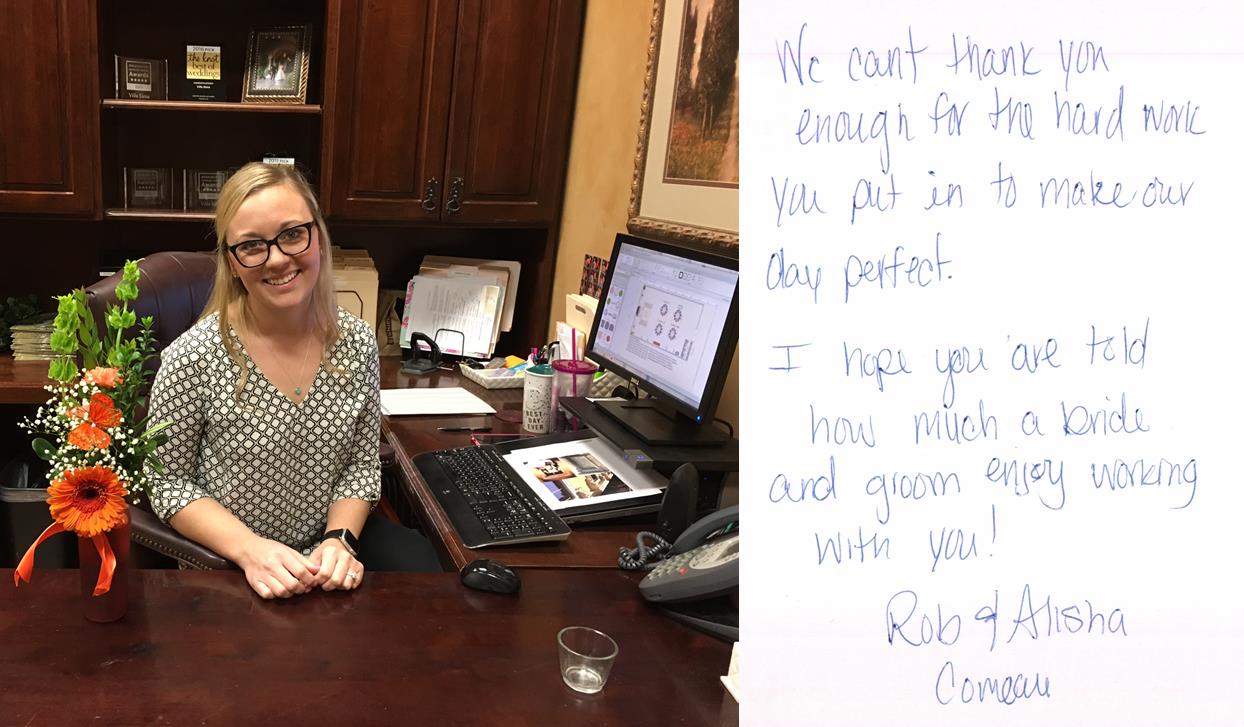 2016 PICK
the knot
best of
weddings
Villa Siena
Awards
★★★★★
Villa Siena
2015 PICK
Awards
BEST
DAY
EVER
We can't thank you
enough for the hard work
you put in to make our
day perfect.
I hope you are told
how much a bride
and groom enjoy working
with you!
Rob & Alisha
Comeau